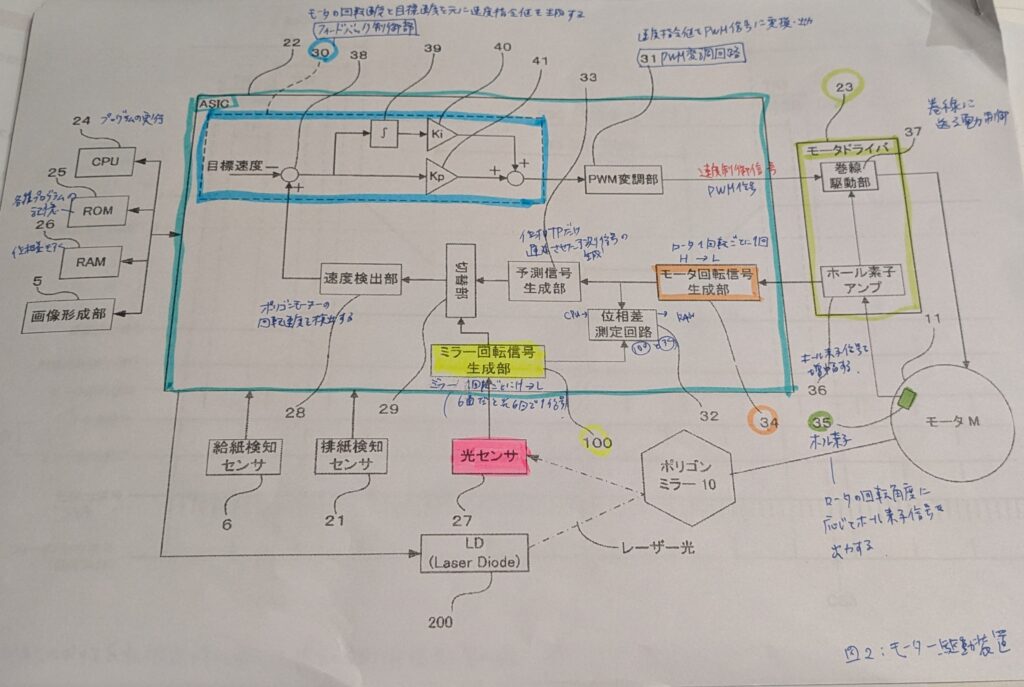 モータの回転速度と目標速度を元に速度指令値を生成する
フィードバック制御部
速度指令値をPWM信号に変換・出力
31 PWM変調回路
22
30
38
39
40
41
33
23
巻線に
送る電力制御
37
ASIC
24 プログラムの実行
CPU
25
各種プログラムの
記憶
ROM
26
RAM
5
画像形成部
目標速度
−
+
∫
Ki
Kp
+
+
PWM変調部
速度制御信号
PWM信号
モータドライバ
巻線
駆動部
ホール素子
アンプ
位相TPだけ
遅延させた予測信号の
生成
ロータ1回転ごとに1回
H→L
速度検出部
切替部
予測信号
生成部
モータ回転信号
生成部
CPU→
位相差
測定回路
→RAM
ポリゴンモーターの
回転速度を検出する
ミラー回転信号
生成部
ミラー1回転ごとにH→L
28
29
32
34
36
ホール素子信号を
増幅する
11
35
ホール素子
モータ M
給紙検知
センサ
6
排紙検知
センサ
21
光センサ
27
100
ポリゴン
ミラー 10
ロータの回転角度に
応じてホール素子信号を
出力する
LD
(Laser Diode)
レーザー光
200
図2:モーター駆動装置